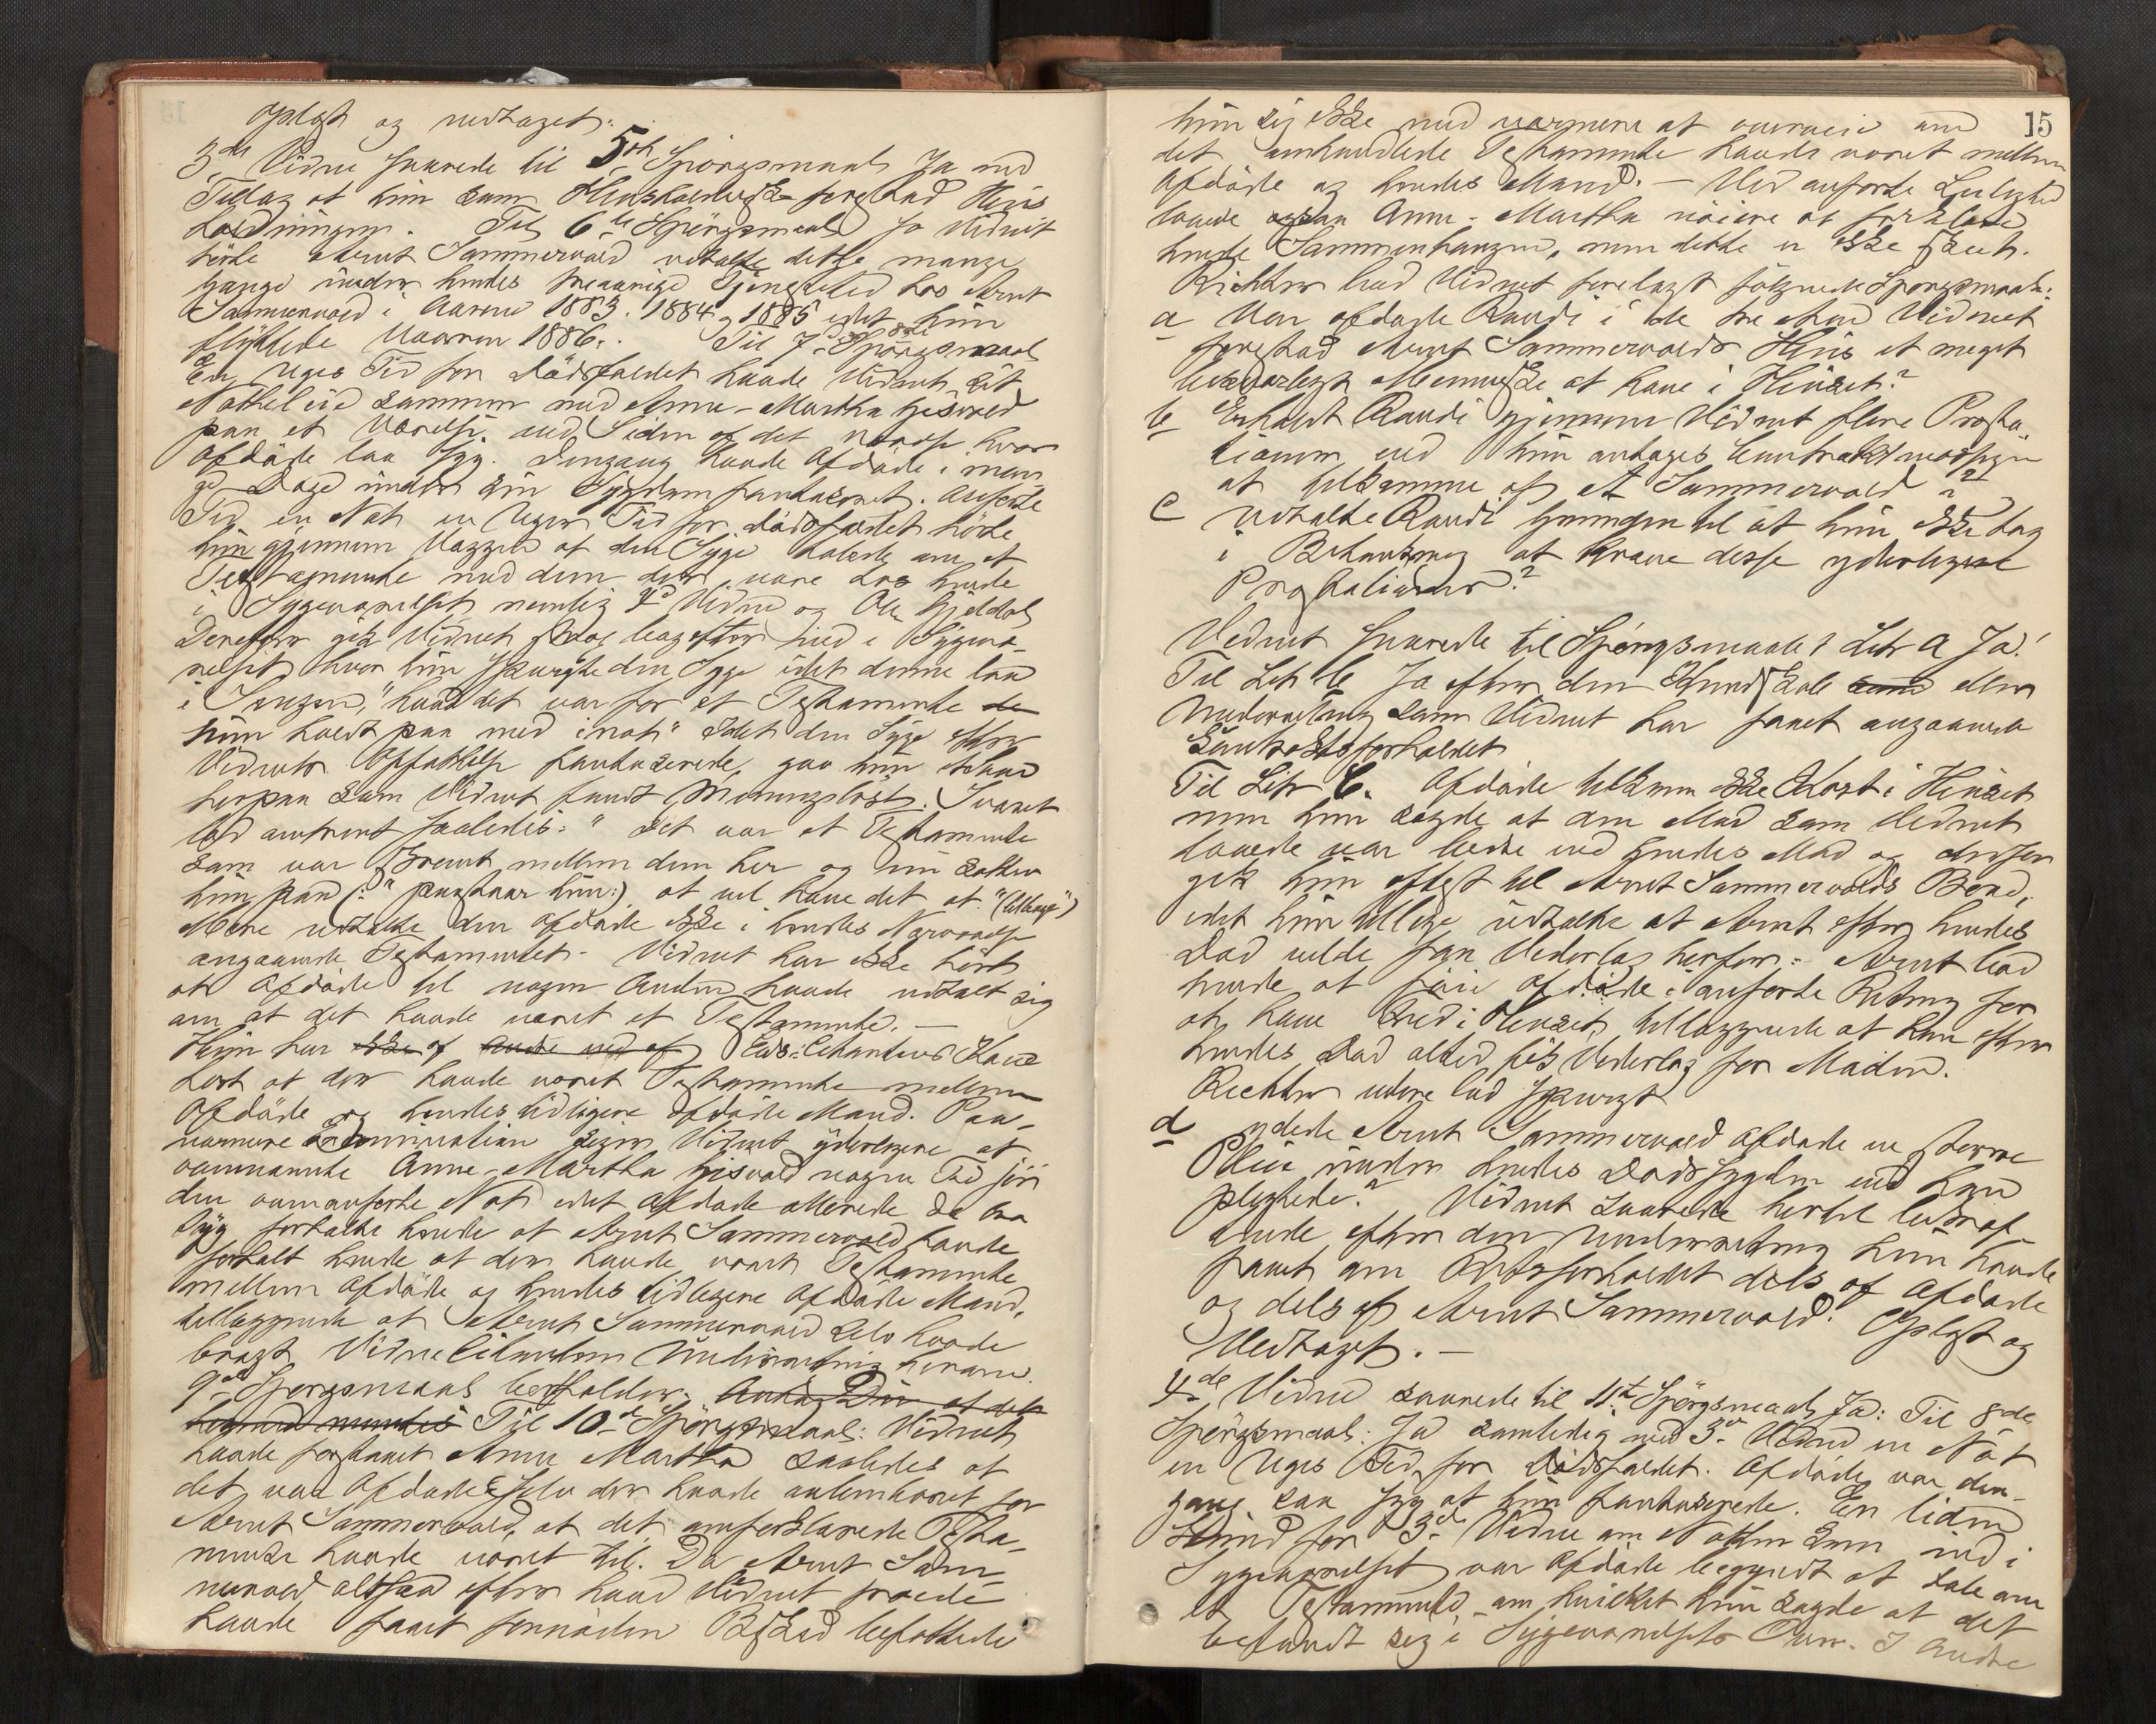 Oplæst og vedtaget.
3die Vidne svarede til 5te Spørgsmaal Ja med
Tillæg at hun som Husholderske forestod Hus
holdningen. Til 6te Spørgsmaal Ja Vidnet
hørte Arnt Sommervold udtalte dette mange
Gange under hendes treaarige Tjenestetid hos Arnt
Sommervold i Aarene 1883. 1884 og 1885 idet hun
flyttede Vaaren 1886. Til 7de 8de Spørgsmaal
En Uges Tid før Dødsfaldet havde Vidnet sit
Natteleie sammen med Anne-Martha Gisvold
paa et Værelse ved Siden af det Værelse hvor
Afdøde laa syg. Dengang havde Afdøde i man
ge Dage under sin Sygdom fantaseret. Anførte
Tid en Nat en Uges Tid før Dødsfaldet hørte
hun gjennem Væggen at den Syge talede om et
Testamente med dem der vare hos hende
i Sygeværelset nemlig 4de Vidne og Ole Gjeldal
Derefter gik Vidnet strax bagefter ind i Sygevæ-
relset hvor hun spurgte den Syge idet denne laa
i Sengen, "hvad det var for et Testamente de
hun holdt paa med inat" Idet den Syge efter
Vidnets Opfattelse fantaserede, gav hun Svar
herpaa som Vidnet fandt Meningsløst. Svaret
lød omtrent saaledes: "Det var et Testamente
som var skrevet mellem dem her og nu sætter
hun paa (: "paastaar hun:) at vil have det at "(tilbage")
Mere udtalte den Afdøde ikke i hendes Nærværelse
angaaende Testamentet - Vidnet har ikke hørt
at Afdøde til nogen Anden havde udtalt sig
om at det havde været et Testamente. -
Hun har ikke af andre end af Eds: Citantens Kone
hørt at der havde været Testamente mellem
Afdøde og hendes tidligere afdøde Mand. Paa
nærmere Examination siger Vidnet yderligere at
ovennævnte Anne-Martha Gisvold nogen Tid før
den ovenanførte Nat idet Afdøde allerede da laa
syg fortalte hende at Arnt Sommervold havde
fortalt hende at der havde været Testamente
mellem Afdøde og hendes tidligere afdøde Mand,
tilleggende at Arnt Sommervold selv havde
bragt Vidne Citanten Underretning herom.
9de Spørgsmaal bortfalder. Til 10de Spørgsmaal: Vidnet
havde forstaaet Anne Martha saaledes at
det var Afdøde selv der havde aabenbaret for
Arnt Sommervold, at det omforklarede Testa-
mente havde været til. Da Arnt Som-
mervold altsaa efter hvad Vidnet troede
havde faaet fornøden Besked befattede
15
hun sig ikke med nærmere at overveie om
det omhandlede Testamente havde været mellem
Afdøde og hendes Mand. - Ved anførte Leilighed
lovede ogsaa Anne-Martha nøiere at forklare
hende Sammenhængen, men dette er ikke skeet.
Richter lod Vidnet forelagt følgende Spørgsmaal:
a Var afdøde Randi i de tre Aar Vidnet
forestod Arnt Sommervolds Hus et meget
besværligt Menneske at have i Huset?
b Erholdt Randi gjennem Vidnet flere Presta
tioner end hun antages kontraktmæssigen
at tilkomme af A Sommervold?
c Udtalte Randi Grunden til at hun ikke tog
i Betænkning at kræve desse yderligere
Prestationer?
Vidnet svarede til Spørgsmaalet Litr a Ja!
Til Litr b Ja efter den Kundskab eller
Underretning som Vidnet har faaet angaaende
Kontraktsforholdet
Til Litr C. Afdøde tilkom ikke Kost i Huset
men hun sagde at den Mad som Vidnet
lavede var bedre end hendes Mad og derfor
gik hun oftest til Arnt Sommervolds Bord,
idet hun tillige udtalte at Arnt efter hendes
Død vilde faa Vederlag herfor. Arnt bad
hende at føie Afdøde i anførte Retning for
at have Fred i Huset, tilleggende at han efter
hendes Død altid fik Vederlag for Maden.
Richter videre lod spurgt
d ydede Arnt Sommervold Afdøde en større
Pleie under hendes Dødssygdom end han
pligtede? Vidnet svarede hertil bekræf
tende efter den Underretning hun havde
faaet om Retsforholdet dels af Afdøde
og dels af Arnt Sommervold. Oplæst og
Vedtaget. -
4de Vidne svarede til 11te Spørgsmaal Ja: Til 8de
Spørgsmaal: Ja samtidig med 3die Vidne en Nat
en Uges Tid før Dødsfaldet. Afdøde var den-
gang saa syg at hun fantaserede. En liden
Stund før 3die Vidne om Natten kom ind i
Sygeværelset var Afdøde begyndt at tale om
et Testamente, om hvilket hun sagde at det
befandt sig i Sygeværelsets Ovn. I Andre